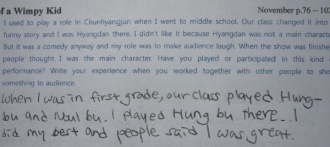 f a Wimpy Kid November p.76 ~ 102
I used to play a role in Chunhyangjun when I went to middle school. Our class changed it into
funny story and I was Hyangdan there. I didn't like it because Hyangdan was not a main characte
But it was a comedy anyway and my role was to make audience laugh. When the show was finishe
people thought I was the main character. Have you played or participated in this kind
performance? Write your experience when you worked together with other people to sho
something to audience.
When I was in first grade, our class played Hung-
bu and Nul bu. I played Hung bu there. I
did my best and people said I was great.